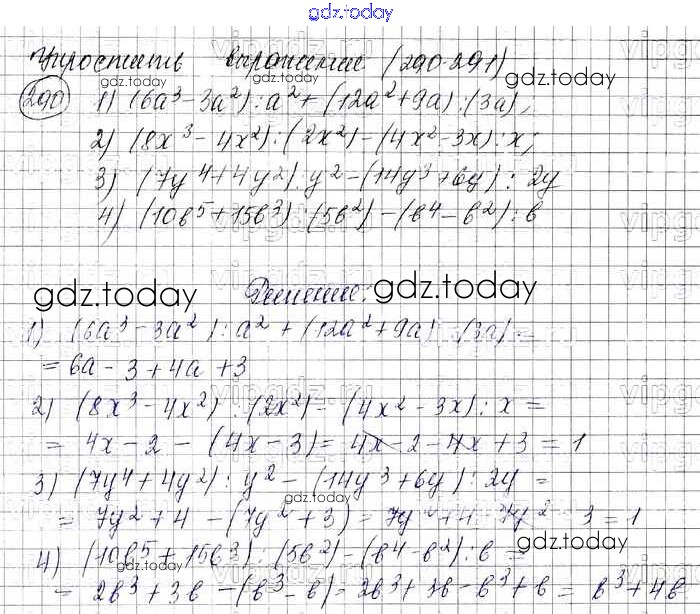 gdz.today
Упростить выражения (290-291)
gdz.today gdz.today
290 1) (6a³-3a²):a²+(12a²+9a):(3a),
2) (8x³-4x²):(2x²)-(4x²-3x):x;
3) (7y⁴+4y²):y²-(14y³+6y):2y
4) (10b⁵+15b³):(5b²)-(b⁴-b²):b
gdz.today
gdz.today Решение: gdz.today
1) (6a³-3a²):a²+(12a²+9a):(3a)=
gdz.today gdz.today
=6a-3+4a+3
2) (8x³-4x²):(2x²)=(4x²-3x):x=
=4x-2-(4x-3)=4x-2-4x+3=1
3) (7y⁴+4y²):y²-(14y³+6y):2y=
gdz.today
=7y²+4-(7y²+3)=7y²+4-7y²-3=1
gdz.today
4) (10b⁵+15b³):(5b²)-(b⁴-b²):b=
gdz.today gdz.today
=2b³+3b-(b³-b)=2b³+3b-b³+b=b³+4b